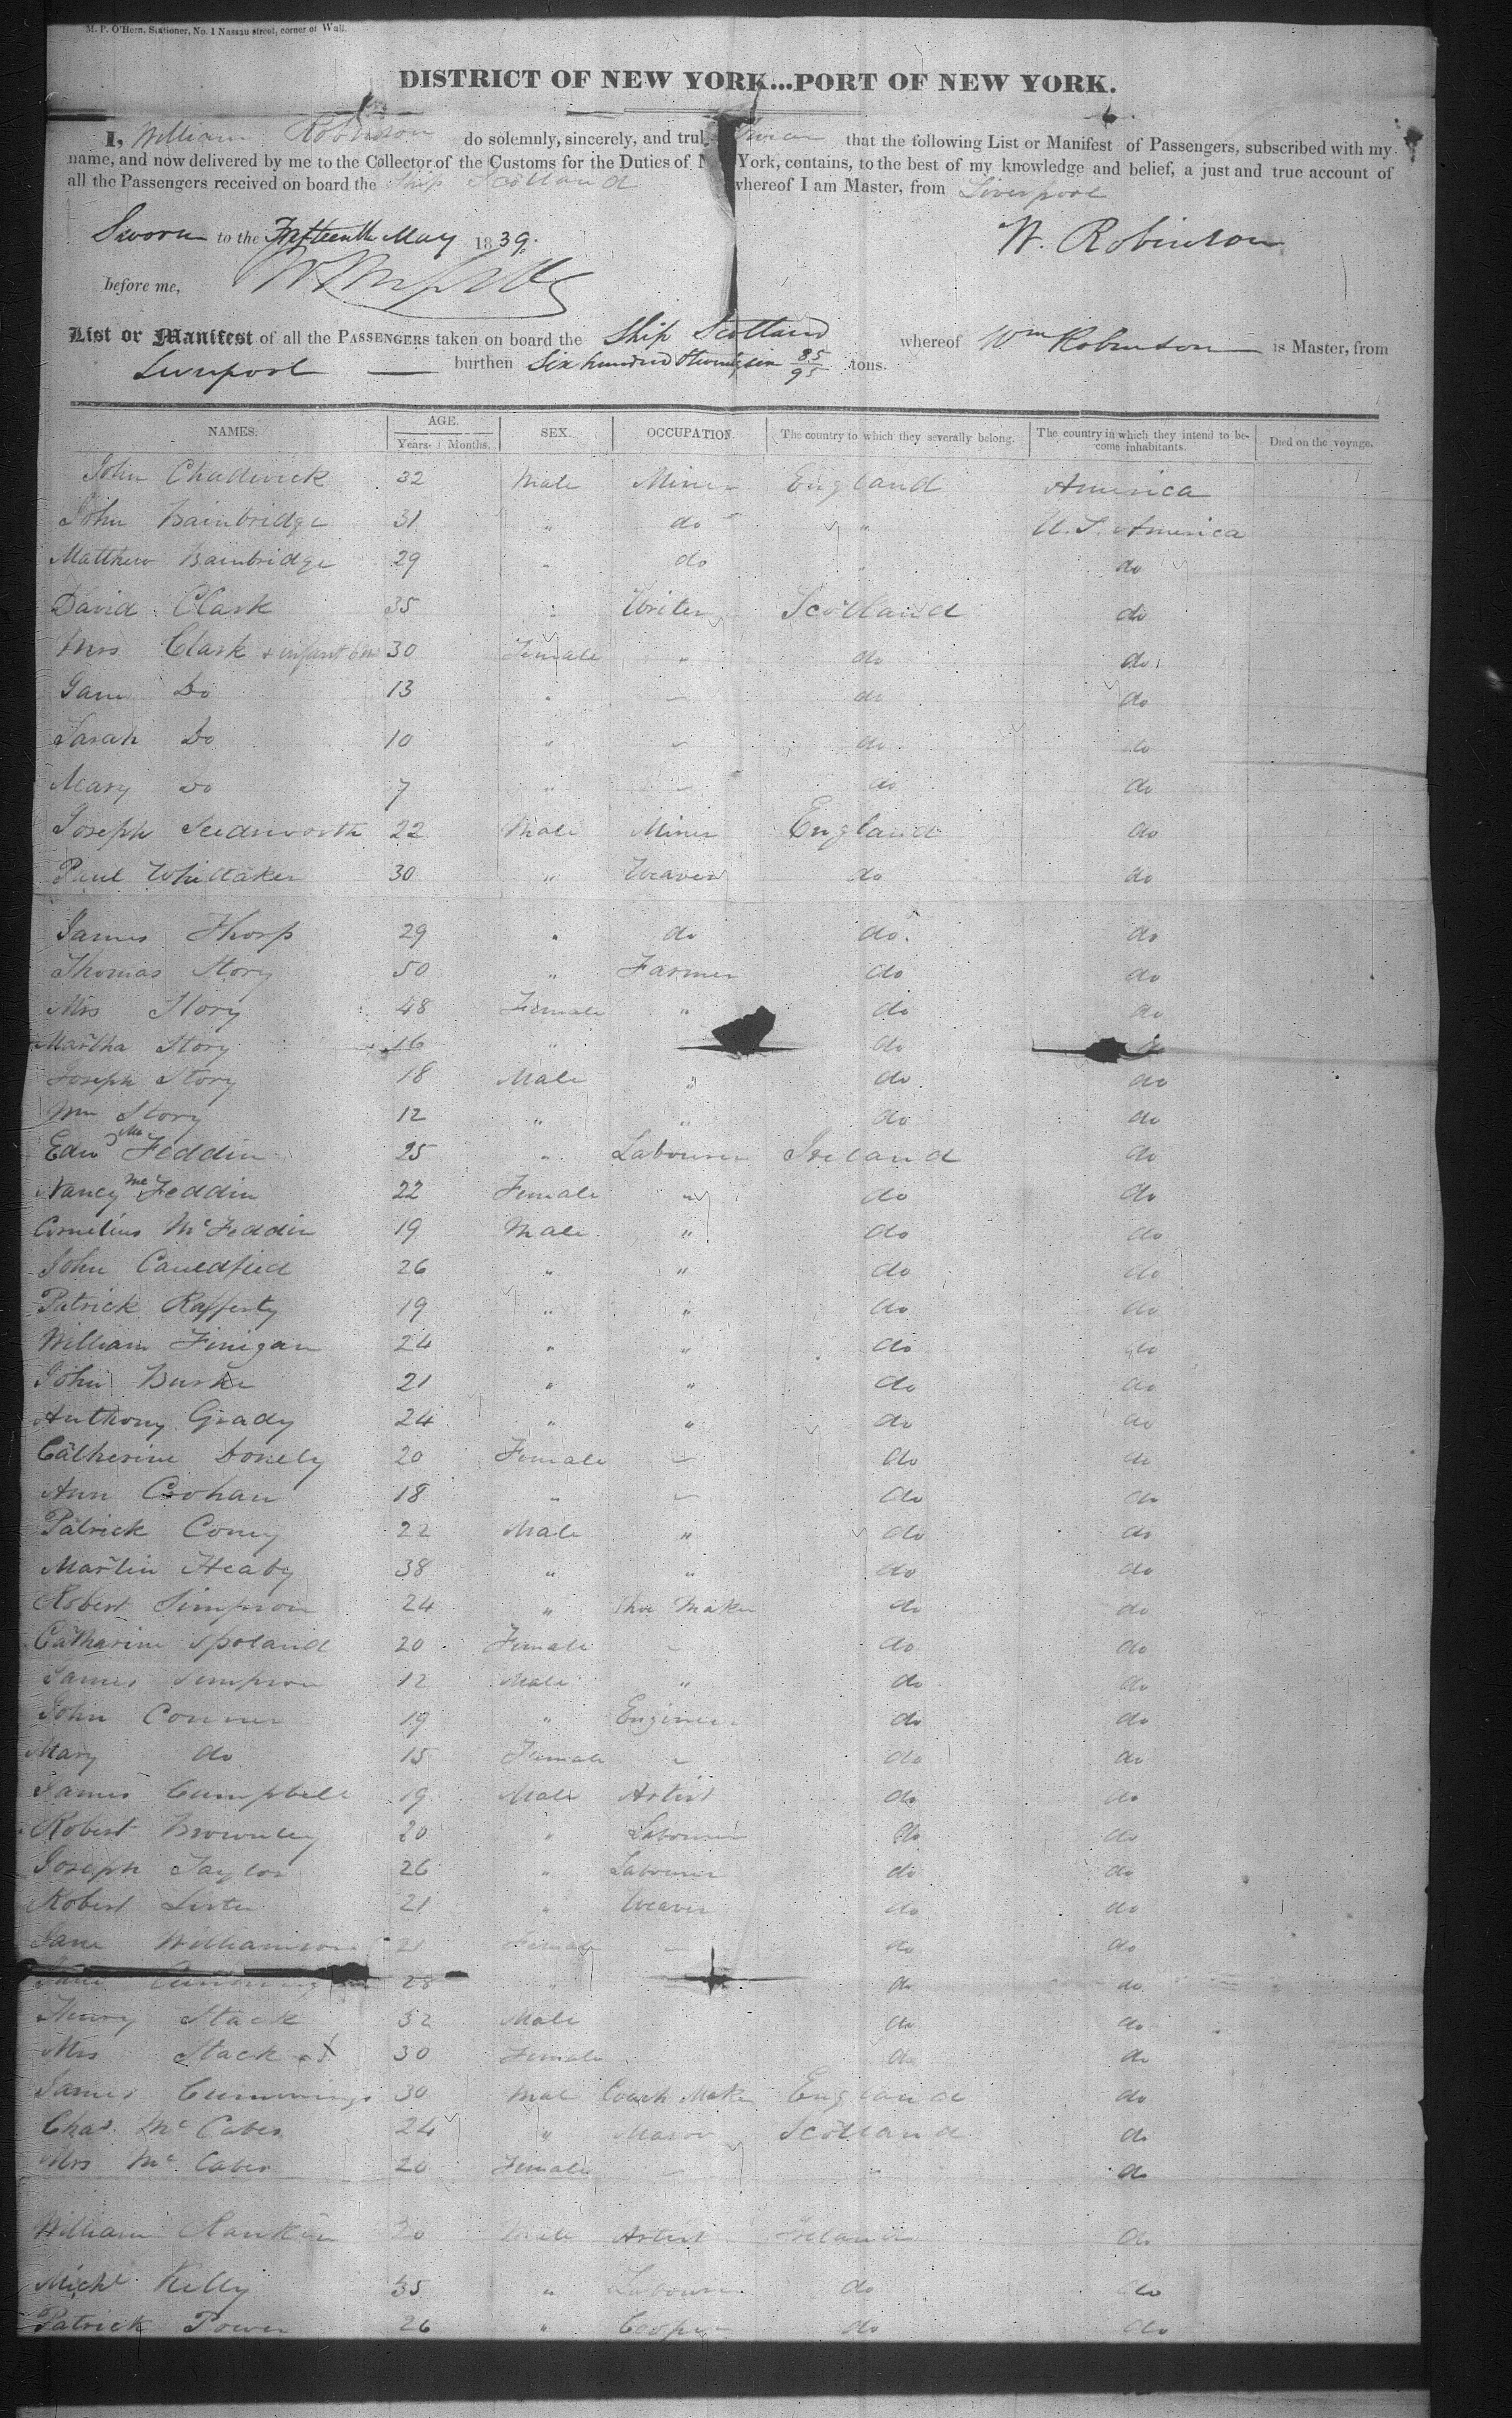 M. P. O'Hern, Stationer, No. 1 Nassau street, corner of Wall.
DISTRICT OF NEW YORK...PORT OF NEW YORK.
I, William Robinson do solemnly, sincerely, and trul swear that the following List or Manifest of Passengers, subscribed with my
name, and now delivered by me to the Collector of the Customs for the Duties of N York, contains, to the best of my knowledge and belief, a just and true account of
all the Passengers received on board the Ship Scotland whereof I am Master, from Liverpool
Sworn to the Fifteenth May 1839. W. Robinson
before me,
List or Manifest of all the PASSENGERS taken on board the Ship Scotland whereof Wm Robinson is Master, from
Liverpool burthen Six hundred 85/95 tons.
NAMES. AGE. SEX. OCCUPATION. The country to which they severally belong. The country in which they intend to be- Died on the voyage.
Years. Months. come inhabitants.
John Chadwick 32 Male Miner England America
John Bainbridge 31 " do " U.S. America
Matthew Bainbridge 29 " do " do
David Clark 35 " Writer Scotland do
Mrs Clark & infant 30 Female " do do
Jane Do 13 " " do do
Sarah Do 10 " " do do
Mary Do 7 " " do do
Joseph 22 Male Miner England do
Paul Whittaker 30 " Weaver do do
James Thorp 29 " do do do
Thomas Story 50 " Farmer do do
Mrs Story 48 Female " do do
Martha Story 16 " do do
Joseph Story 18 Male " do do
Wm Story 12 " " do do
Edwd McFeddin 25 " Labourer Ireland do
Nancy McFeddin 22 Female " do do
Cornelius McFeddin 19 Male " do do
John Cauldfied 26 " " do do
Patrick Rafferty 19 " " do do
William Finigan 24 " " do do
John Burke 21 " " do do
Anthony Grady 24 " " do do
Catherine Donely 20 Female " do do
Ann Crohan 18 " " do do
Patrick Comy 22 Male " do do
Martin Heaby 38 " " do do
Robert Simpson 24 " Shoe Maker do do
Catharine Spoland 20 Female " do do
James Simpson 12 Male " do do
John Conner 19 " Engineer do do
Mary do 15 Female " do do
James Campbell 19 Male Artist do do
Robert Brownley 20 " Labourer do do
Joseph Taylor 26 " Labourer do do
Robert Lister 21 " Weaver do do
Jane Williamson 21 Female " do do
28 " do do
Henry Stack 32 Male do do
Mrs Stack 30 Female do do
James Cummings 30 Mal Coach Make England do
Chas McCaber 24 " Mason Scotland do
Mrs McCaber 20 Female " " do
William Rankin 20 Male Artist Ireland do
Michl Kelly 35 " Labourer do do
Patrick Power 26 " Cooper do do